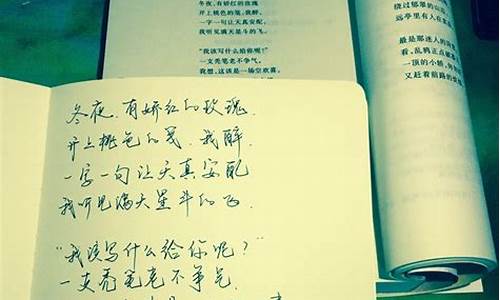 冬夜，有娇红的玫瑰
开上桃色的笺，我醉，
一字一句让天真安配，
我听见满天星斗的飞。
“我该写什么给你呢？”
一支秃笔老不争气，
我想，这该是一场空欢喜。
绕过郁翠的山
远亭里有人在
最是那迷人的
看，乱鸦正点
一顶的小轿，
又赶着前路的
冬夜，有娇红的玫瑰，
开上桃色的笺，我醉，
一字一句让天真安配
我听见满天星斗的飞
“我该写什么给你呢？”
一支秃笔老不争气，